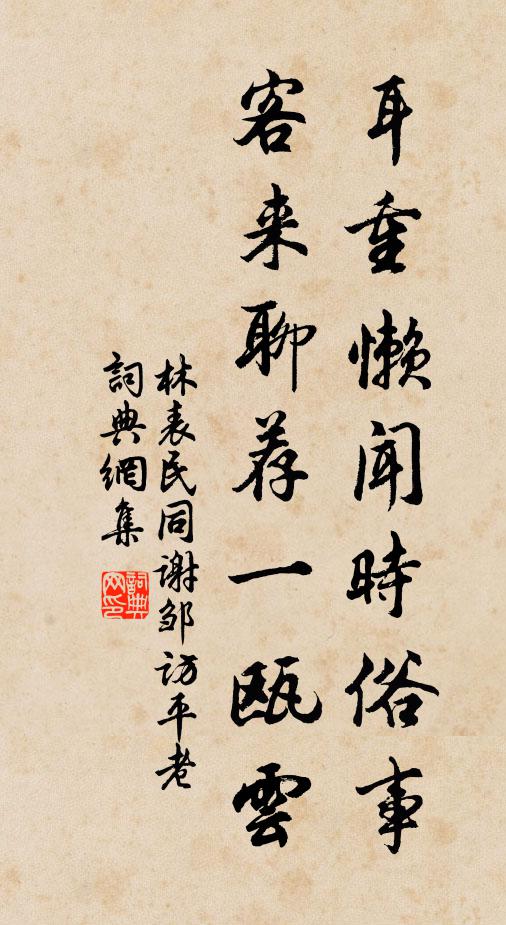 耳重懒闻時俗事
客来聊荐一瓯雲
林表民同谢邹访平老
詞典網集
詞典网印